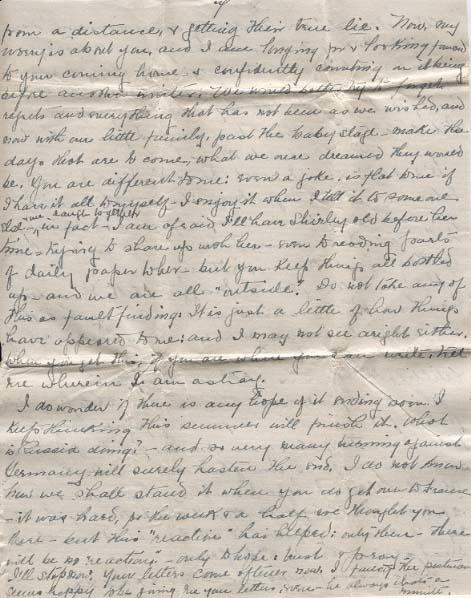 from a distance, & getting their true lie. Now, my
worry is about you, and I am longing for & looking forward
to your coming home & confidently counting on it being
before another winter. We would better try to forget
regrets and everything that has not been as we wished, and
now with our little family, past the baby stage - make the
days that are to come, what we once dreamed they would
be. You are different to me: even a joke, is flat to me if
I have it all to myself - I enjoy it when I tell it to someone
& we laugh together
fact - I am afraid I'll have Shirley old before her
time - trying to share up with her - even to reading parts
of daily paper to her - but you keep things all bottled
up - and we are all "outside". Do not take any of
this as faultfinding: It is just a little of how things
have appeared to me: and I may not see aright either.
When you get this, if you are where you can write, tell
me wherein I am astray.
I do wonder if there is any hope of it ending soon. I
keep thinking this summer will finish it. What
is Russia doing? - and so very many turning against
Germany will surely hasten the end. I do not know
how we shall stand it when you do get over to France
- it was hard, for the week & a half we thought you
there - but this "reaction" has helped: only then - there
will be no "reaction" - only to hope & trust & pray -
I'll stop now. Your letters come oftener now. I fancy the postman
seems happy giving me your letters, - he always